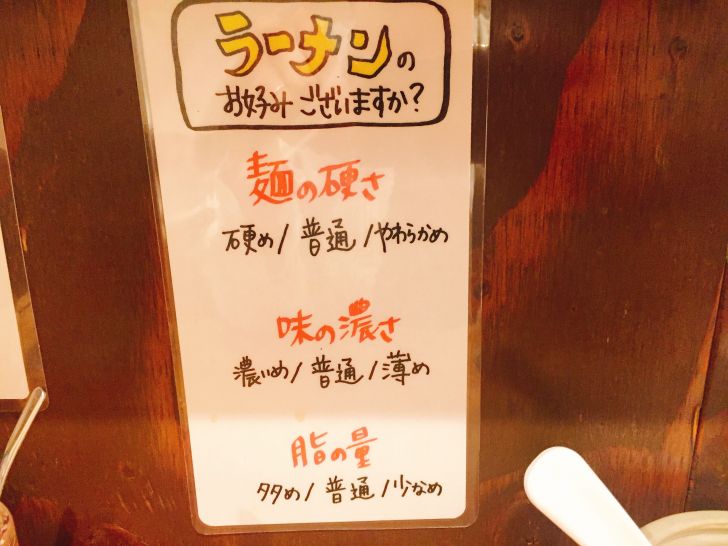 ラーメンの
お好みございますか?
麺の硬さ
硬め/普通/やわらかめ
味の濃さ
濃いめ/普通/薄め
脂の量
多め/普通/少なめ